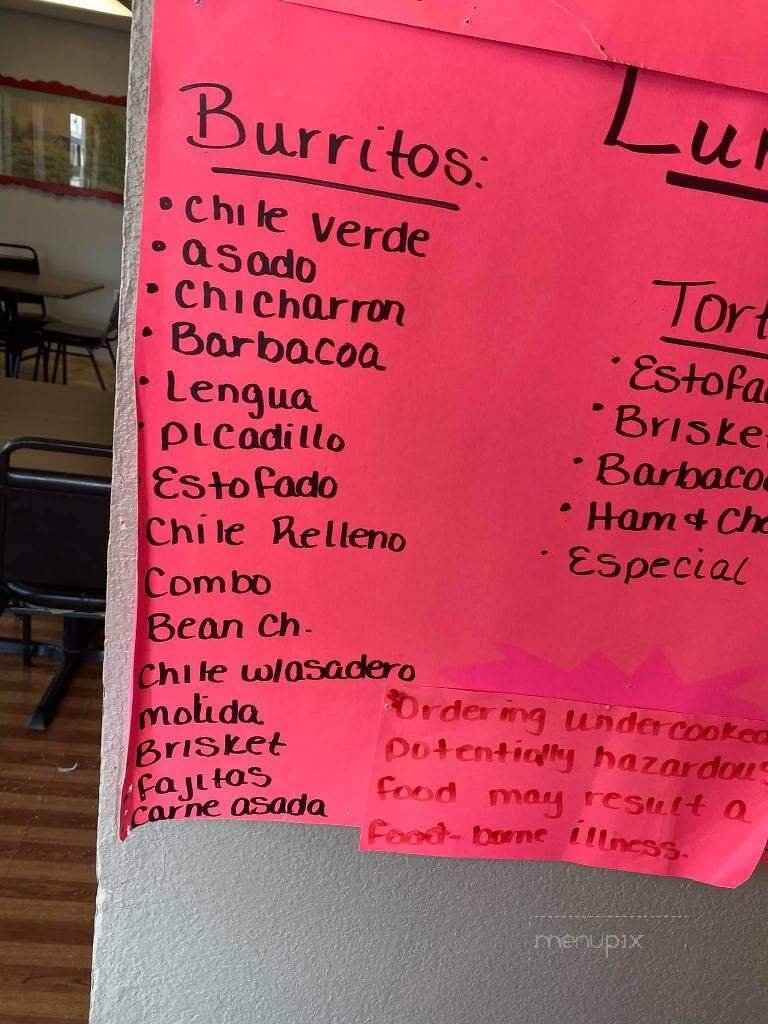 Burritos:
• Chile verde
• asado
• Chicharron
• Barbacoa
• Lengua
• Picadillo
• Estofado
Chile Relleno
Combo
Bean Ch.
Chile w/asadero
molida
Brisket
fajitas
Carne asada
Lun
Tort
• Estofa
• Briske
• Barbacoa
• Ham & Che
• Especial
*Ordering undercooked
potentially hazardous
food may result a
food-borne illness.
menupix